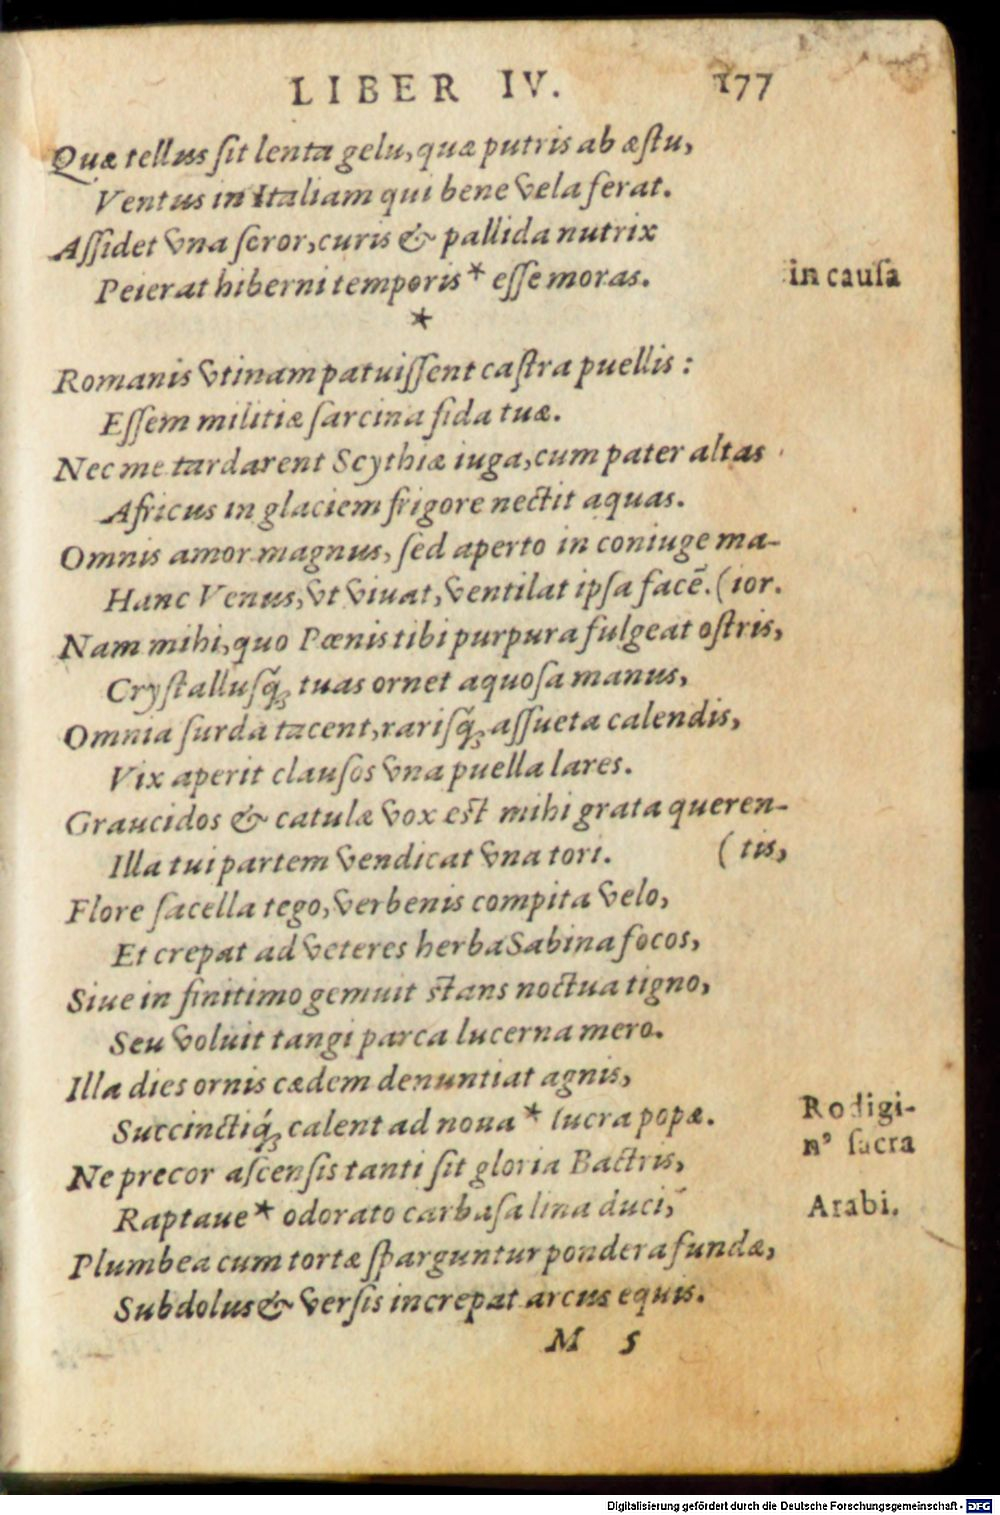 LIBER IV. 177
Quæ tellus sit lenta gelu, quæ putris ab æstu,
Ventus in Italiam qui bene vela ferat.
Assidet vna soror, curis & pallida nutrix
Peierat hiberni temporis * esse moras.
in causa
*
Romanis vtinam patuissent castra puellis :
Essem militiæ sarcina fida tuæ.
Nec me tardarent Scythiæ iuga, cum pater altas
Africus in glaciem frigore nectit aquas.
Omnis amor magnus, sed aperto in coniuge ma-
Hanc Venus, vt viuat, ventilat ipsa facē. (ior.
Nam mihi, quo Pœnis tibi purpura fulgeat ostris,
Crystallusq́; tuas ornet aquosa manus,
Omnia surda tacent, rarisq́; assueta calendis,
Vix aperit clausos vna puella lares.
Graucidos & catulæ vox est mihi grata queren-
Illa tui partem vendicat vna tori. (tis,
Flore sacella tego, verbenis compita velo,
Et crepat ad veteres herba Sabina focos,
Siue in finitimo gemuit stans noctua tigno,
Seu voluit tangi parca lucerna mero.
Illa dies ornis cædem denuntiat agnis,
Succinctiq́; calent ad noua * lucra popæ.
Rodigi-
n⁹ sacra
Ne precor ascensis tanti sit gloria Bactris,
Raptaue * odorato carbasa lina duci,
Arabi.
Plumbea cum tortæ sparguntur pondera fundæ,
Subdolus & versis increpat arcus equis.
M 5
Digitalisierung gefördert durch die Deutsche Forschungsgemeinschaft - DFG